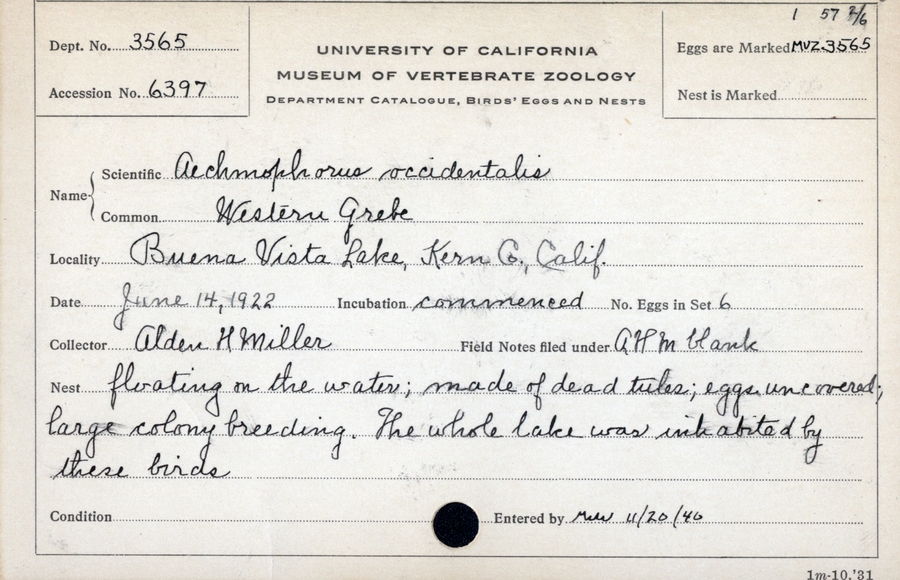 1 57 2/6
Dept. No. 3565
UNIVERSITY OF CALIFORNIA
Eggs are Marked MVZ.3565
MUSEUM OF VERTEBRATE ZOOLOGY
Accession No. 6397
DEPARTMENT CATALOGUE, BIRDS' EGGS AND NESTS
Nest is Marked
Name { Scientific Aechmophorus occidentalis
Common Western Grebe
Locality Buena Vista Lake, Kern Co., Calif.
Date June 14, 1922 Incubation commenced No. Eggs in Set 6
Collector Alden H Miller Field Notes filed under AHM blank
Nest floating on the water; made of dead tules; eggs uncovered;
large colony breeding. The whole lake was inhabited by
these birds
Condition Entered by 11/20/40
1m-10,'31